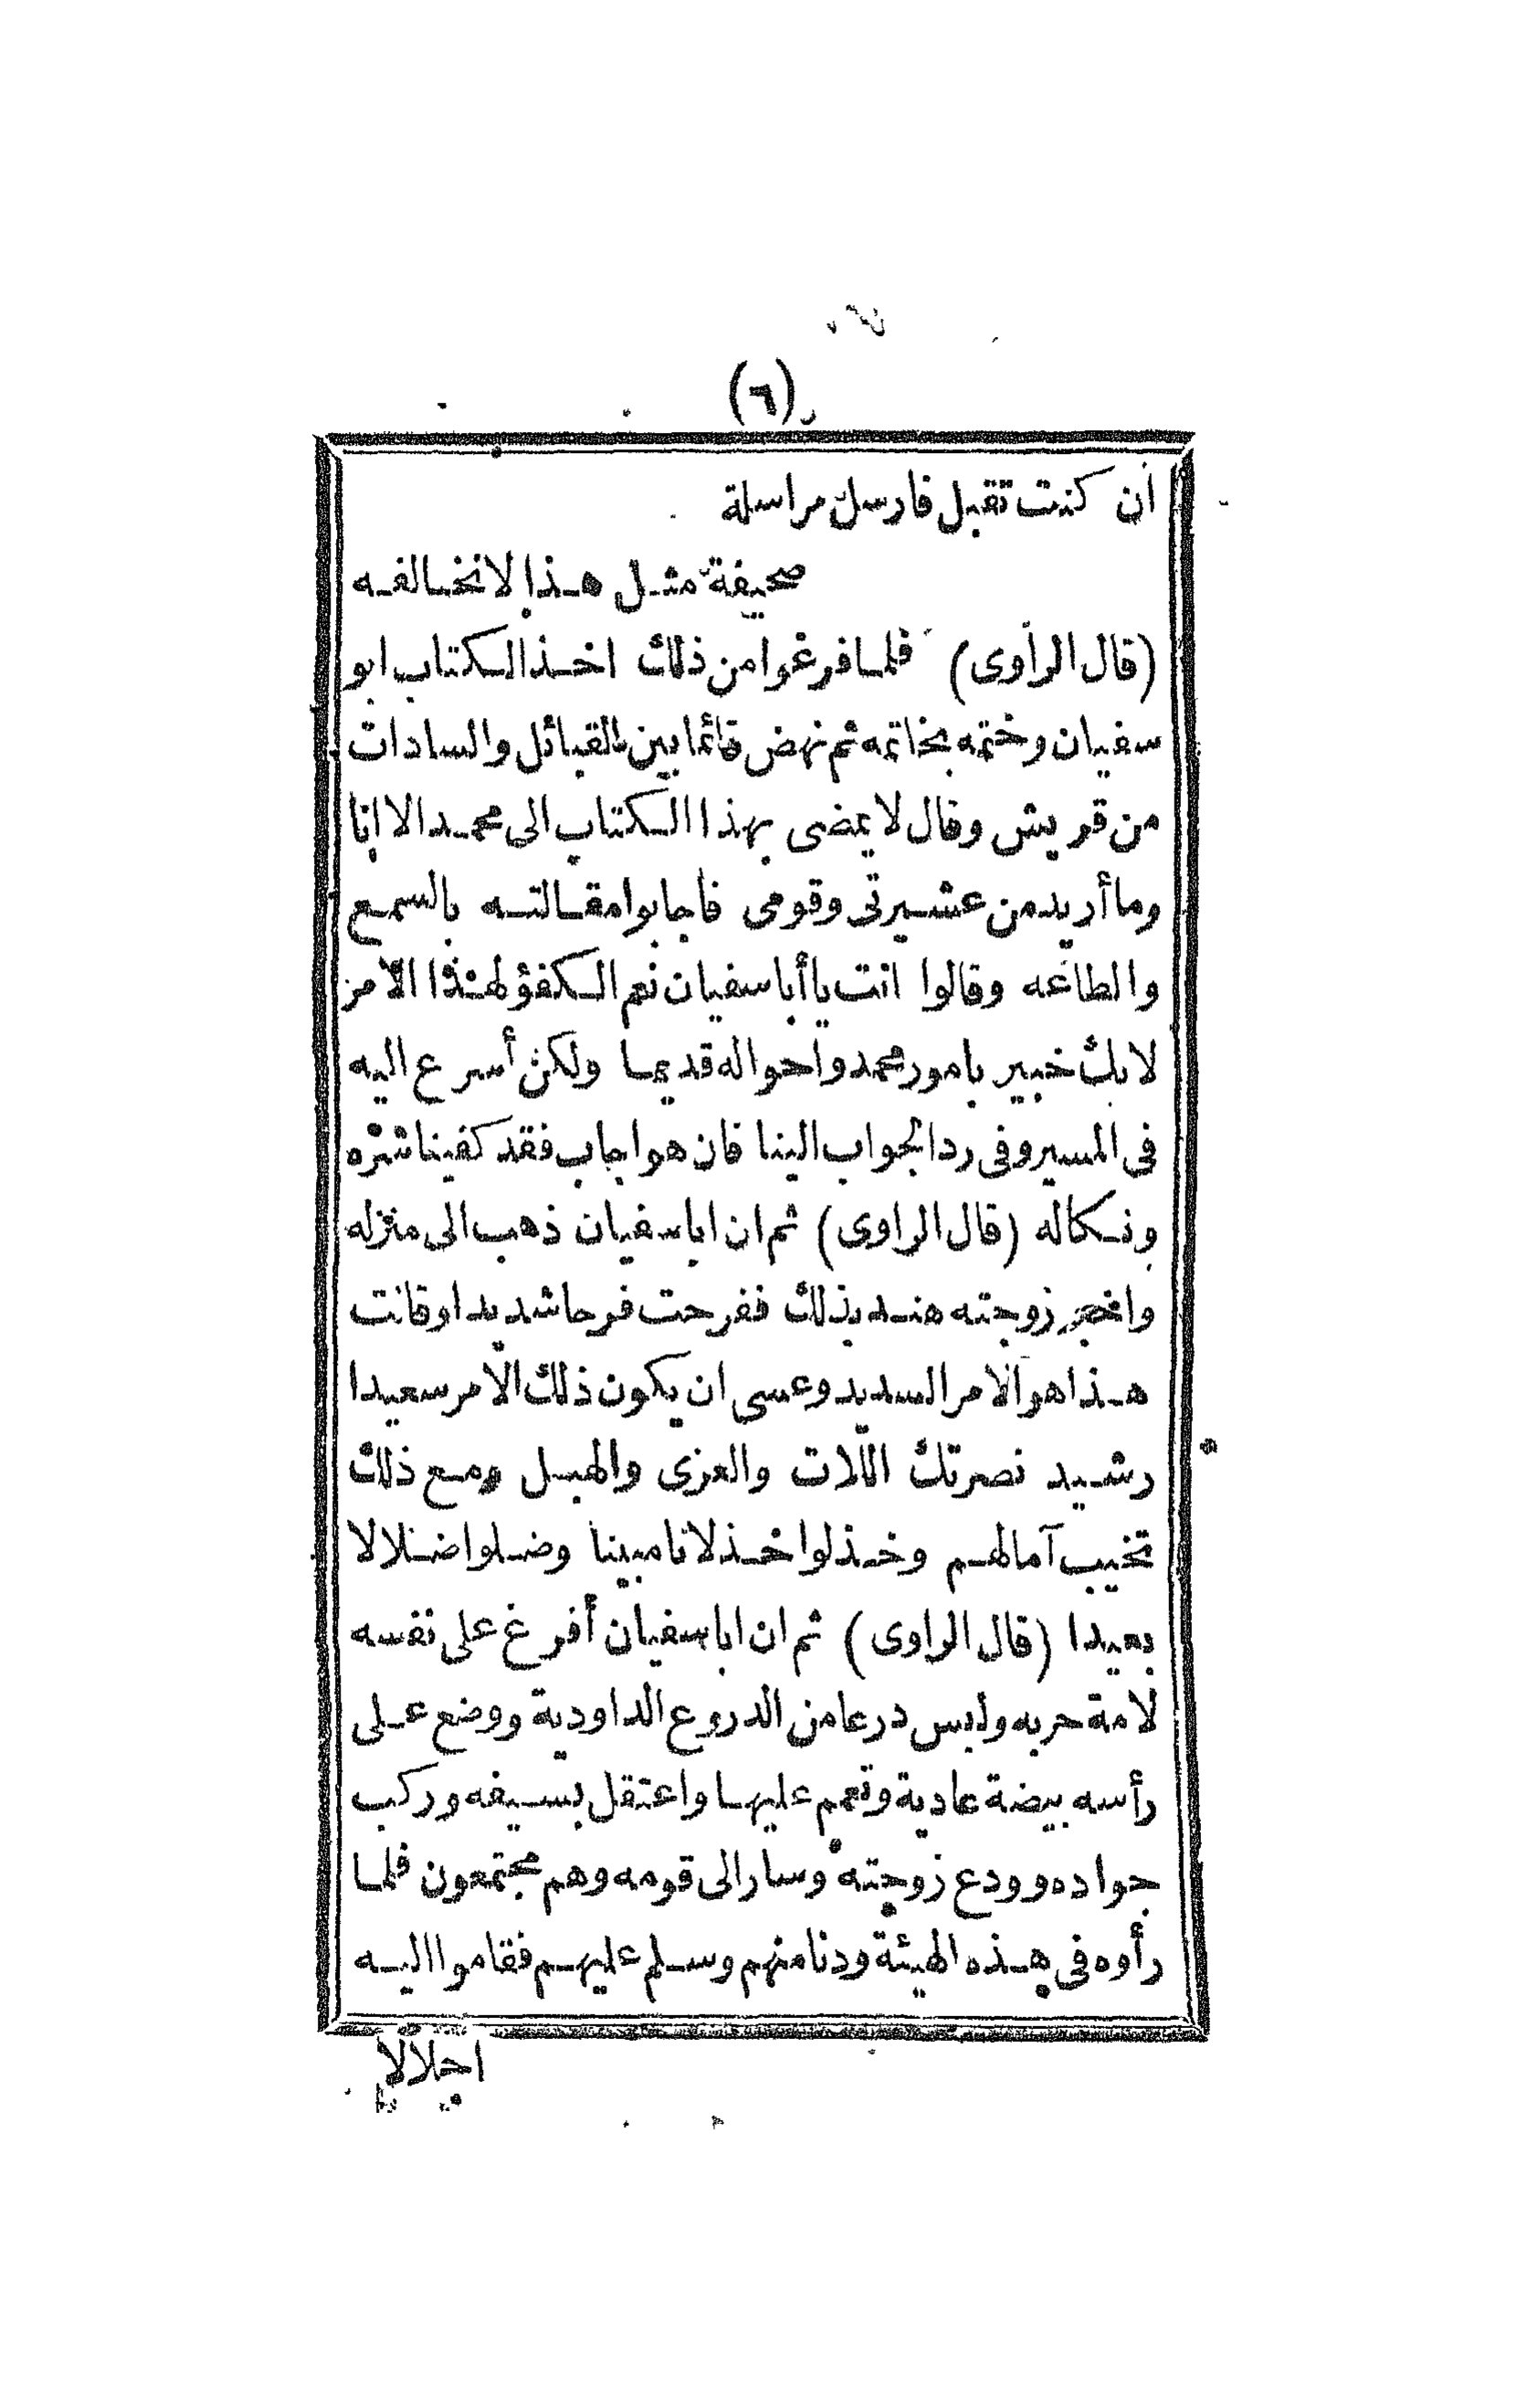 (٦)
ان كنت تقبل فارسل مراسلة
صحيفة مثل هذا لا نخالفه
(قال الراوى) فلما فرغوا من ذلك اخذ الكتاب ابو
سفيان وختمه بخاتمه ثم نهض قائما بين القبائل والسادات
من قريش وقال لا يمضى بهذا الكتاب الى محمد الا انا
وما أريد من عشيرتى وقومى فاجابوا مقالته بالسمع
والطاعه وقالوا انت يا أبا سفيان نعم الكفؤ لهذا الامر
لا بك خبير بامور محمد واحواله قديما ولكن أسرع اليه
فى المسير وفى رد الجواب الينا فان هو اجاب فقد كفينا شره
ونكاله (قال الراوى) ثم ان ابا سفيان ذهب الى منزله
واخبر زوجته هند بذلك ففرحت فرحا شديدا وقانت
هذا هو الامر السديد وعسى ان يكون ذلك الامر سعيدا
رشيد نصرتك اللات والعزى والهبل ومع ذلك
تخيب آمالهم وخذلوا خذلانا مبينا وضلوا ضلالا
بعيدا (قال الراوى) ثم ان ابا سفيان أفرغ على نفسه
لامة حربه ولبس درعا من الدروع الداودية ووضع على
رأسه بيضة عادية وتعمم عليها واعتقل بسيفه وركب
جواده وودع زوجته وسار الى قومه وهم مجتمعون فلما
رأوه فى هذه الهيئة ودنا منهم وسلم عليهم فقاموا اليه
اجلالا